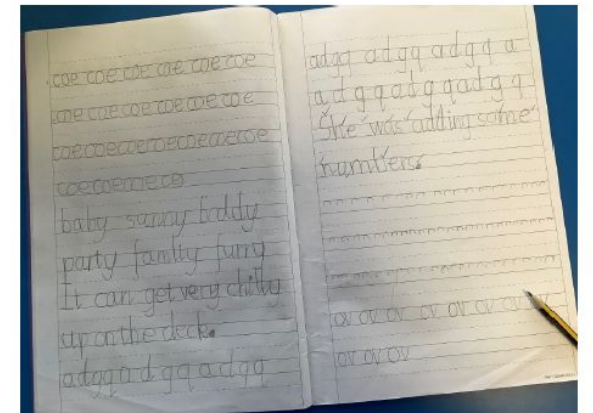 coe coe coe coe coe coe
coe coe coe coe coe coe
coecoecoecoecoecoecoe
coecoecoece
baby sunny
party family furry
It can get very chilly
up on the deck.
adgqadgqadgq
adgq adgq adgq a
adgqadgqadgq
She was adding some
numbers.
ov ov ov ov ov ov ov ov
ov ov ov